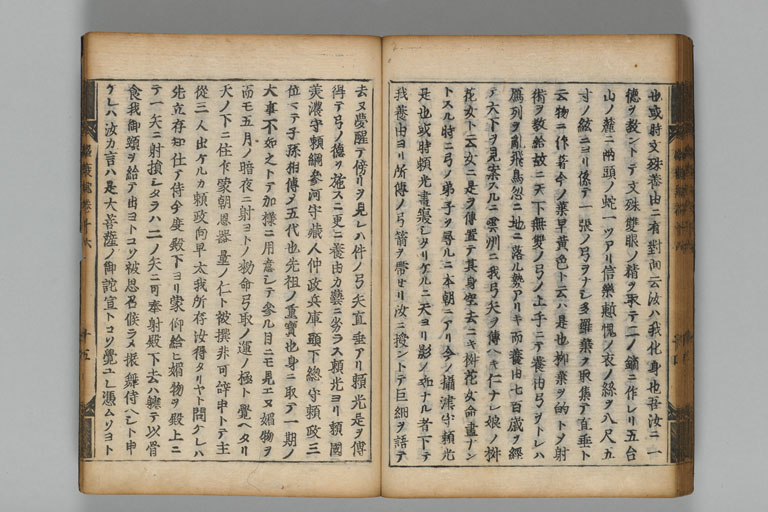 也或時文殊養由ニ有對向云汝ハ我化身也吾汝ニ一
德ヲ教ントテ文殊雙眼ノ精ヲ取テ二ノ鏑ニ作レリ五台
山ノ麓ニ兩頭ノ蛇一ツアリ信樂慙愧ノ衣ノ絲ヲ八尺五
寸ノ絃ニヨリ係テ一張ノ弓ヲナシ多羅葉ヲ取集テ直垂ト
云物ニ作著今ノ葉早黄色ト云ハ是也柳葉ヲ的トメ射
術ヲ教給故ニ天下無雙ノ弓ノ上手ニテ養由弓ヲトレハ
鴈列ヲ亂飛鳥忽ニ地ニ落ル勢アリキ而養由七百歳ヲ經
テ天下ヲ見案スルニ雲州ニ我弓矢ヲ傳ヘキ仁ナレ娘ノ桝
花女ト云女ニ是ヲ傳置テ其身空去ニキ桝花女命盡ナン
トスル時ニ弓ノ弟子ヲ尋ルニ本朝ニアリ今ノ攝津守賴光
是也或時賴光晝寝シタリケルニ天ヨリ影ノ如ナル者下テ
我養由ヨリ所傳ノ弓箭ヲ帶セリ汝ニ授ントテ巨細ヲ話テ
去ヌ夢醒テ傍リヲ見レハ件ノ弓矢直垂アリ賴光是ヲ傳
得テ弓ノ德ヲ施スニ更ニ養由カ藝ニ劣ラス賴光ヨリ賴國
美濃守賴綱參河守藏人仲政兵庫頭下總守賴政三
位マテ子孫相傳メ五代也先祖ノ重寶也身ニ取テ一期ノ
大事不如之トテ加樣ニ用意シテ參ル目ニモ見エヌ媚物ヲ
而モ五月ノ暗夜ニ射ヨトノ勅命弓取ノ運ノ極ト覺ヘタリ
天ノ下ニ住乍蒙朝恩器量ノ仁ト被撰非可辞申トテ主
從三人出ケルカ賴政向早太我所存汝得タリヤト問ケレハ
先立存知仕テ侍今度殿下ヨリ蒙仰給ヒ媚物ヲ殿上ニ
テ一矢ニ射損シタラハ二ノ矢ニ可奉射殿下去ハ鏃テ以骨
食我御頸ヲ給テ由ヨトコソ被思召候ラメ振舞侍ヘシト申
ケレハ汝カ言ハ是大菩薩ノ御詫宣トコソ覺ユレ憑ムソヨト